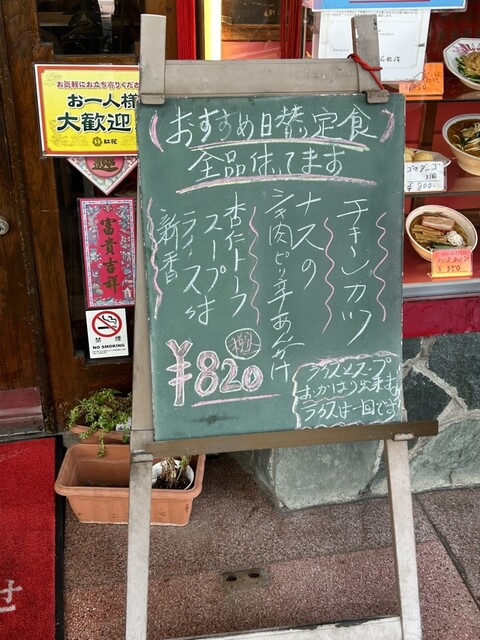 おすすめ日替定食
全品付いてます
チキンカツ
ナスの
シキ肉ピリ辛あんかけ
杏仁トーフ
スープ
ライス
新香
税込
¥820
ライスとスープ
おかはり出来ます
ライスは一回です
お気軽にお立ち寄りください
お一人様
大歓迎
紅花
富貴吉祥
禁煙
NO SMOKING
ゴマダンゴ
¥800